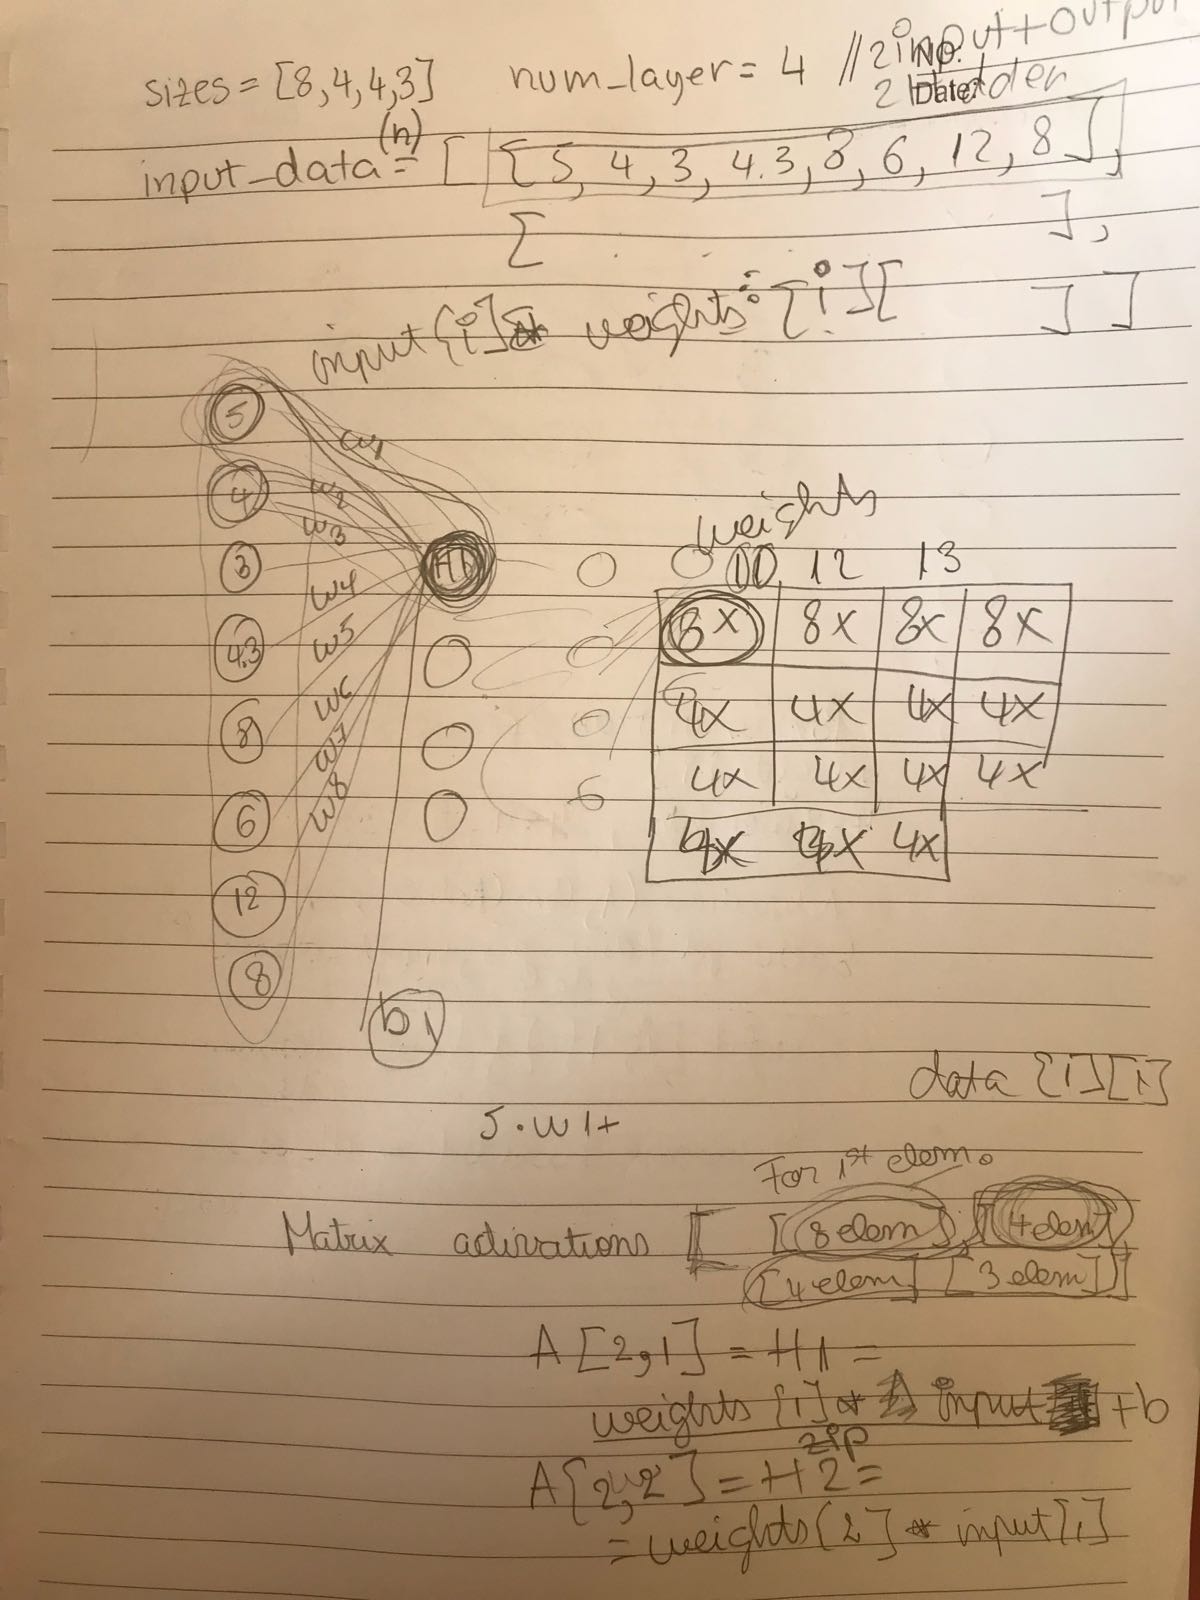 sizes = [8,4,4,3] num_layer = 4 // 2 input + output
No.
2 hidden
Date
(n)
input_data = [ [ 5, 4, 3, 4.3, 8, 6, 12, 8 ],
[ ],
input [i] * weights : [i][ ] ]
5
w1
4
w2
w3
3
H1
w4
4.3
w5
8
w6
w7
6
w8
12
8
b1
weights
12 13
8x 8x 8x 8x
4x 4x 4x 4x
4x 4x 4x 4x
4x 4x 4x
data [i][i]
5 . w1+
For 1st elem.
Matrix activations [ [8 elem], [4 elem]
[4 elem] [3 elem]]
A[2,1] = H1 =
weights [1] * input + b
zip
A[2,2] = H2 =
= weights[2] * input[i]